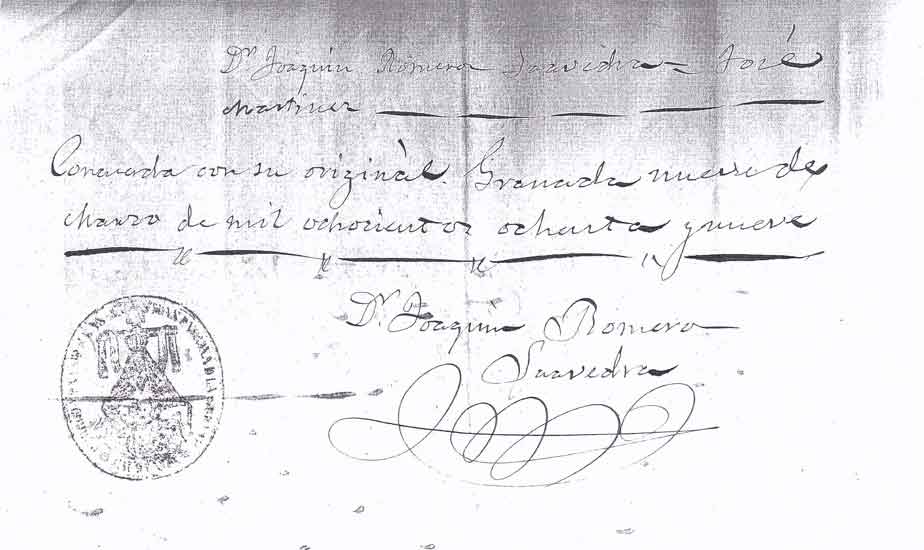 Dr. Joaquin Romero Saavedra = José
Martinez
Concuerda con su originàl. Granada nueve de
Marzo de mil ochocientos ochenta y nueve
Dr. Joaquin Romero
Saavedra